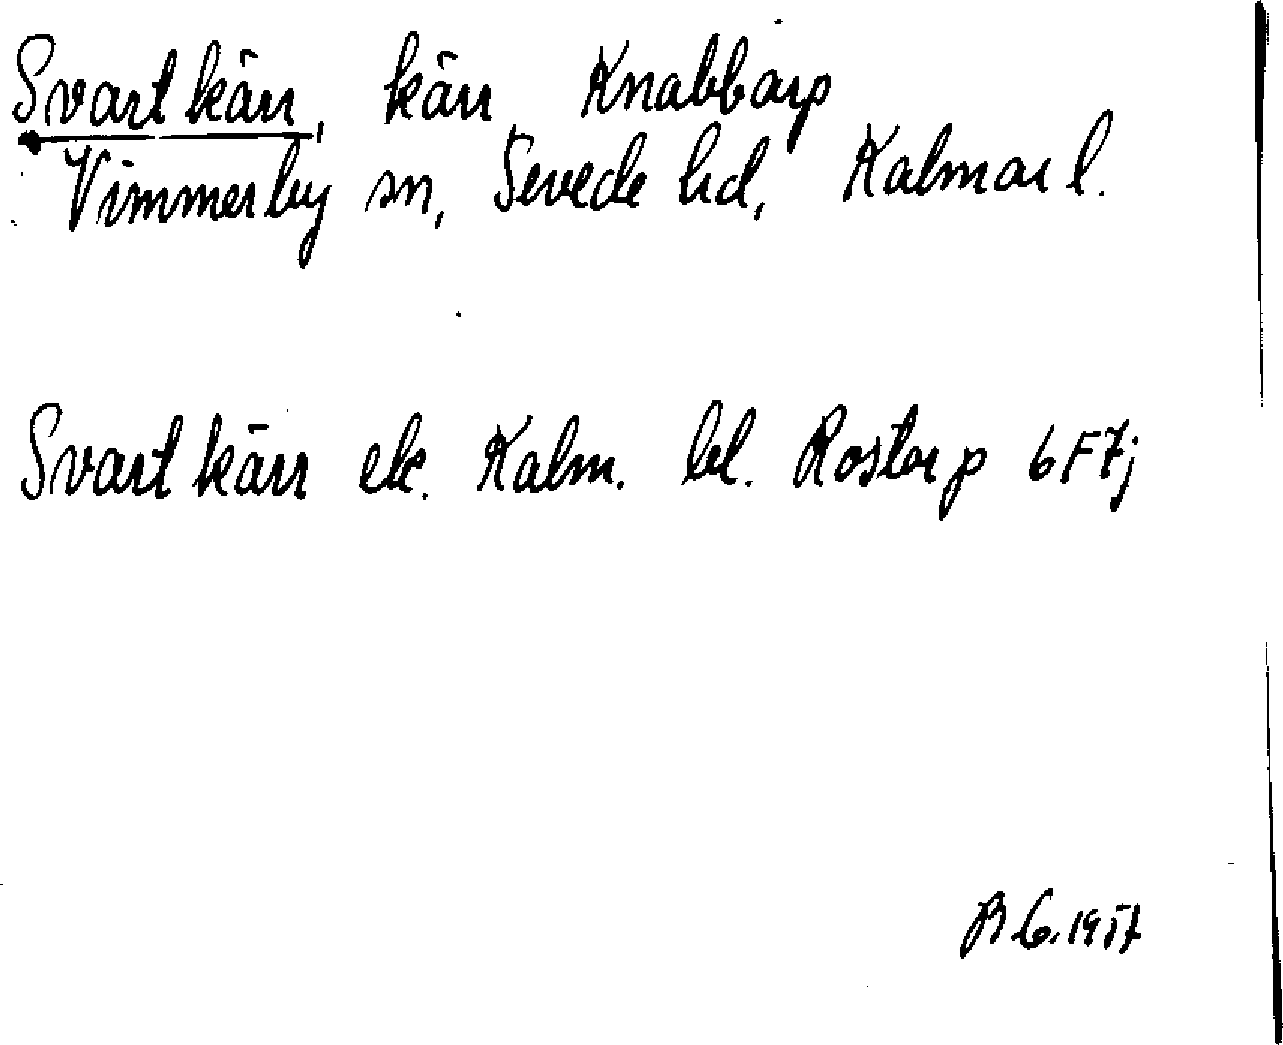 Svartkärr, kärr, Knabbarp
Vimmerby sn, Sevede hd, Kalmar l.
Svartkärr ek. Kalm. bl. Rostorp 6F7j
B G. 1957